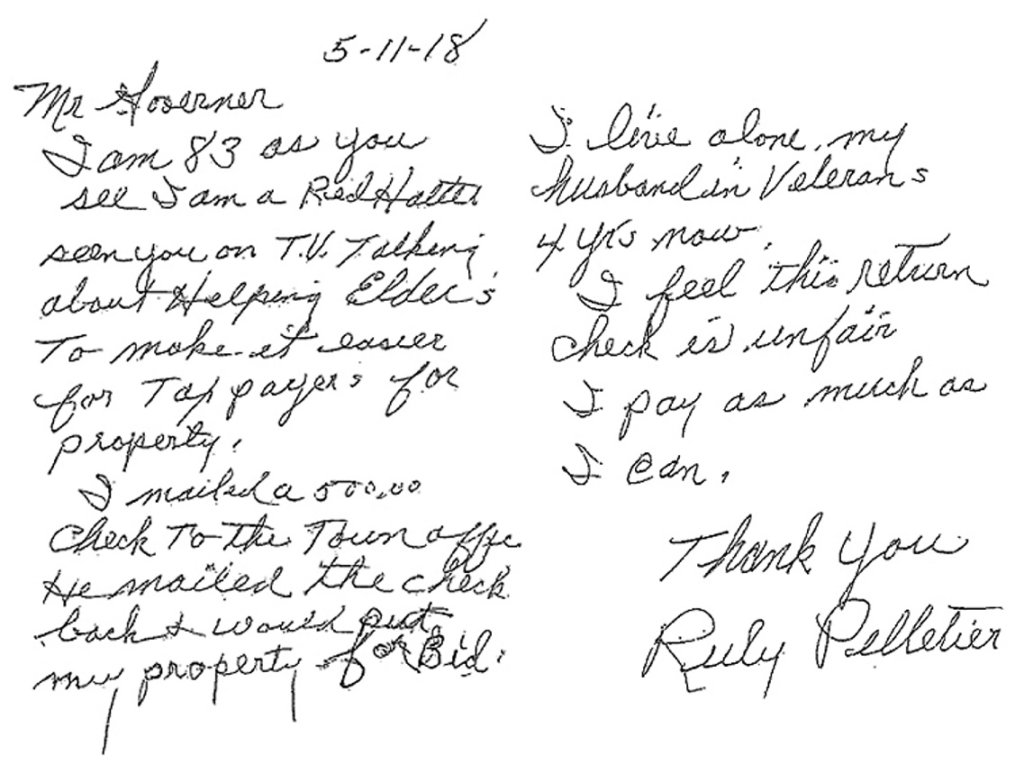 5-11-18
Mr Governer
I am 83 as you
see I am a Red Hatter
seen you on T.V. Talking
about Helping Elder's
To make it easier
for Tax payers for
property.
I mailed a 500.00
check To The Town offc
He mailed the check
back & would put
my property for Bid.
I live alone, my
husband in Veterans
4 yrs now.
I feel this return
check is unfair
I pay as much as
I can.
Thank you
Ruby Pelletier